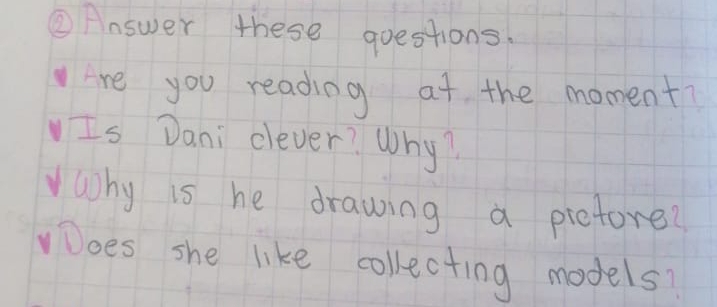 ② Answer these questions.
Are you reading at the moment?
Is Dani clever? Why?
Why is he drawing a picture?
Does she like collecting models?